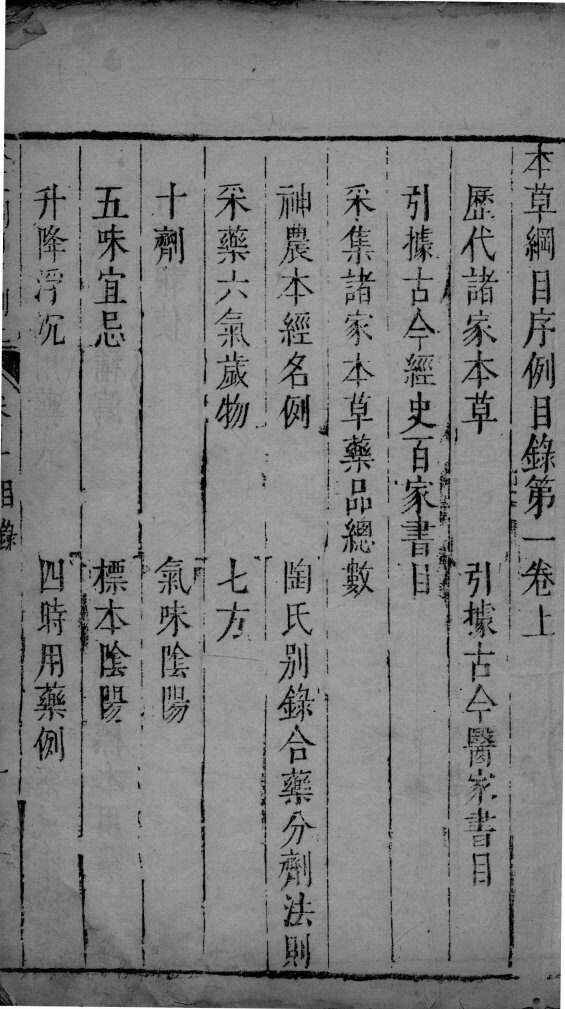 本草綱目序例目錄第一卷上
歷代諸家本草　引據古今醫家書目
引據古今經史百家書目
采集諸家本草藥品總數
神農本經名例　陶氏別錄合藥分劑法則
采藥六氣歲物　七方
十劑　氣味陰陽
五味宜忌　標本陰陽
升降浮沉　四時用藥例
目錄